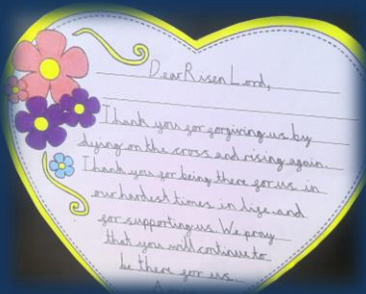 Dear Risen Lord,
Thank you for forgiving us by
dying on the cross and rising again.
Thank you for being there for us in
our hardest times in life and
for supporting us. We pray
that you will continue to
be there for us.